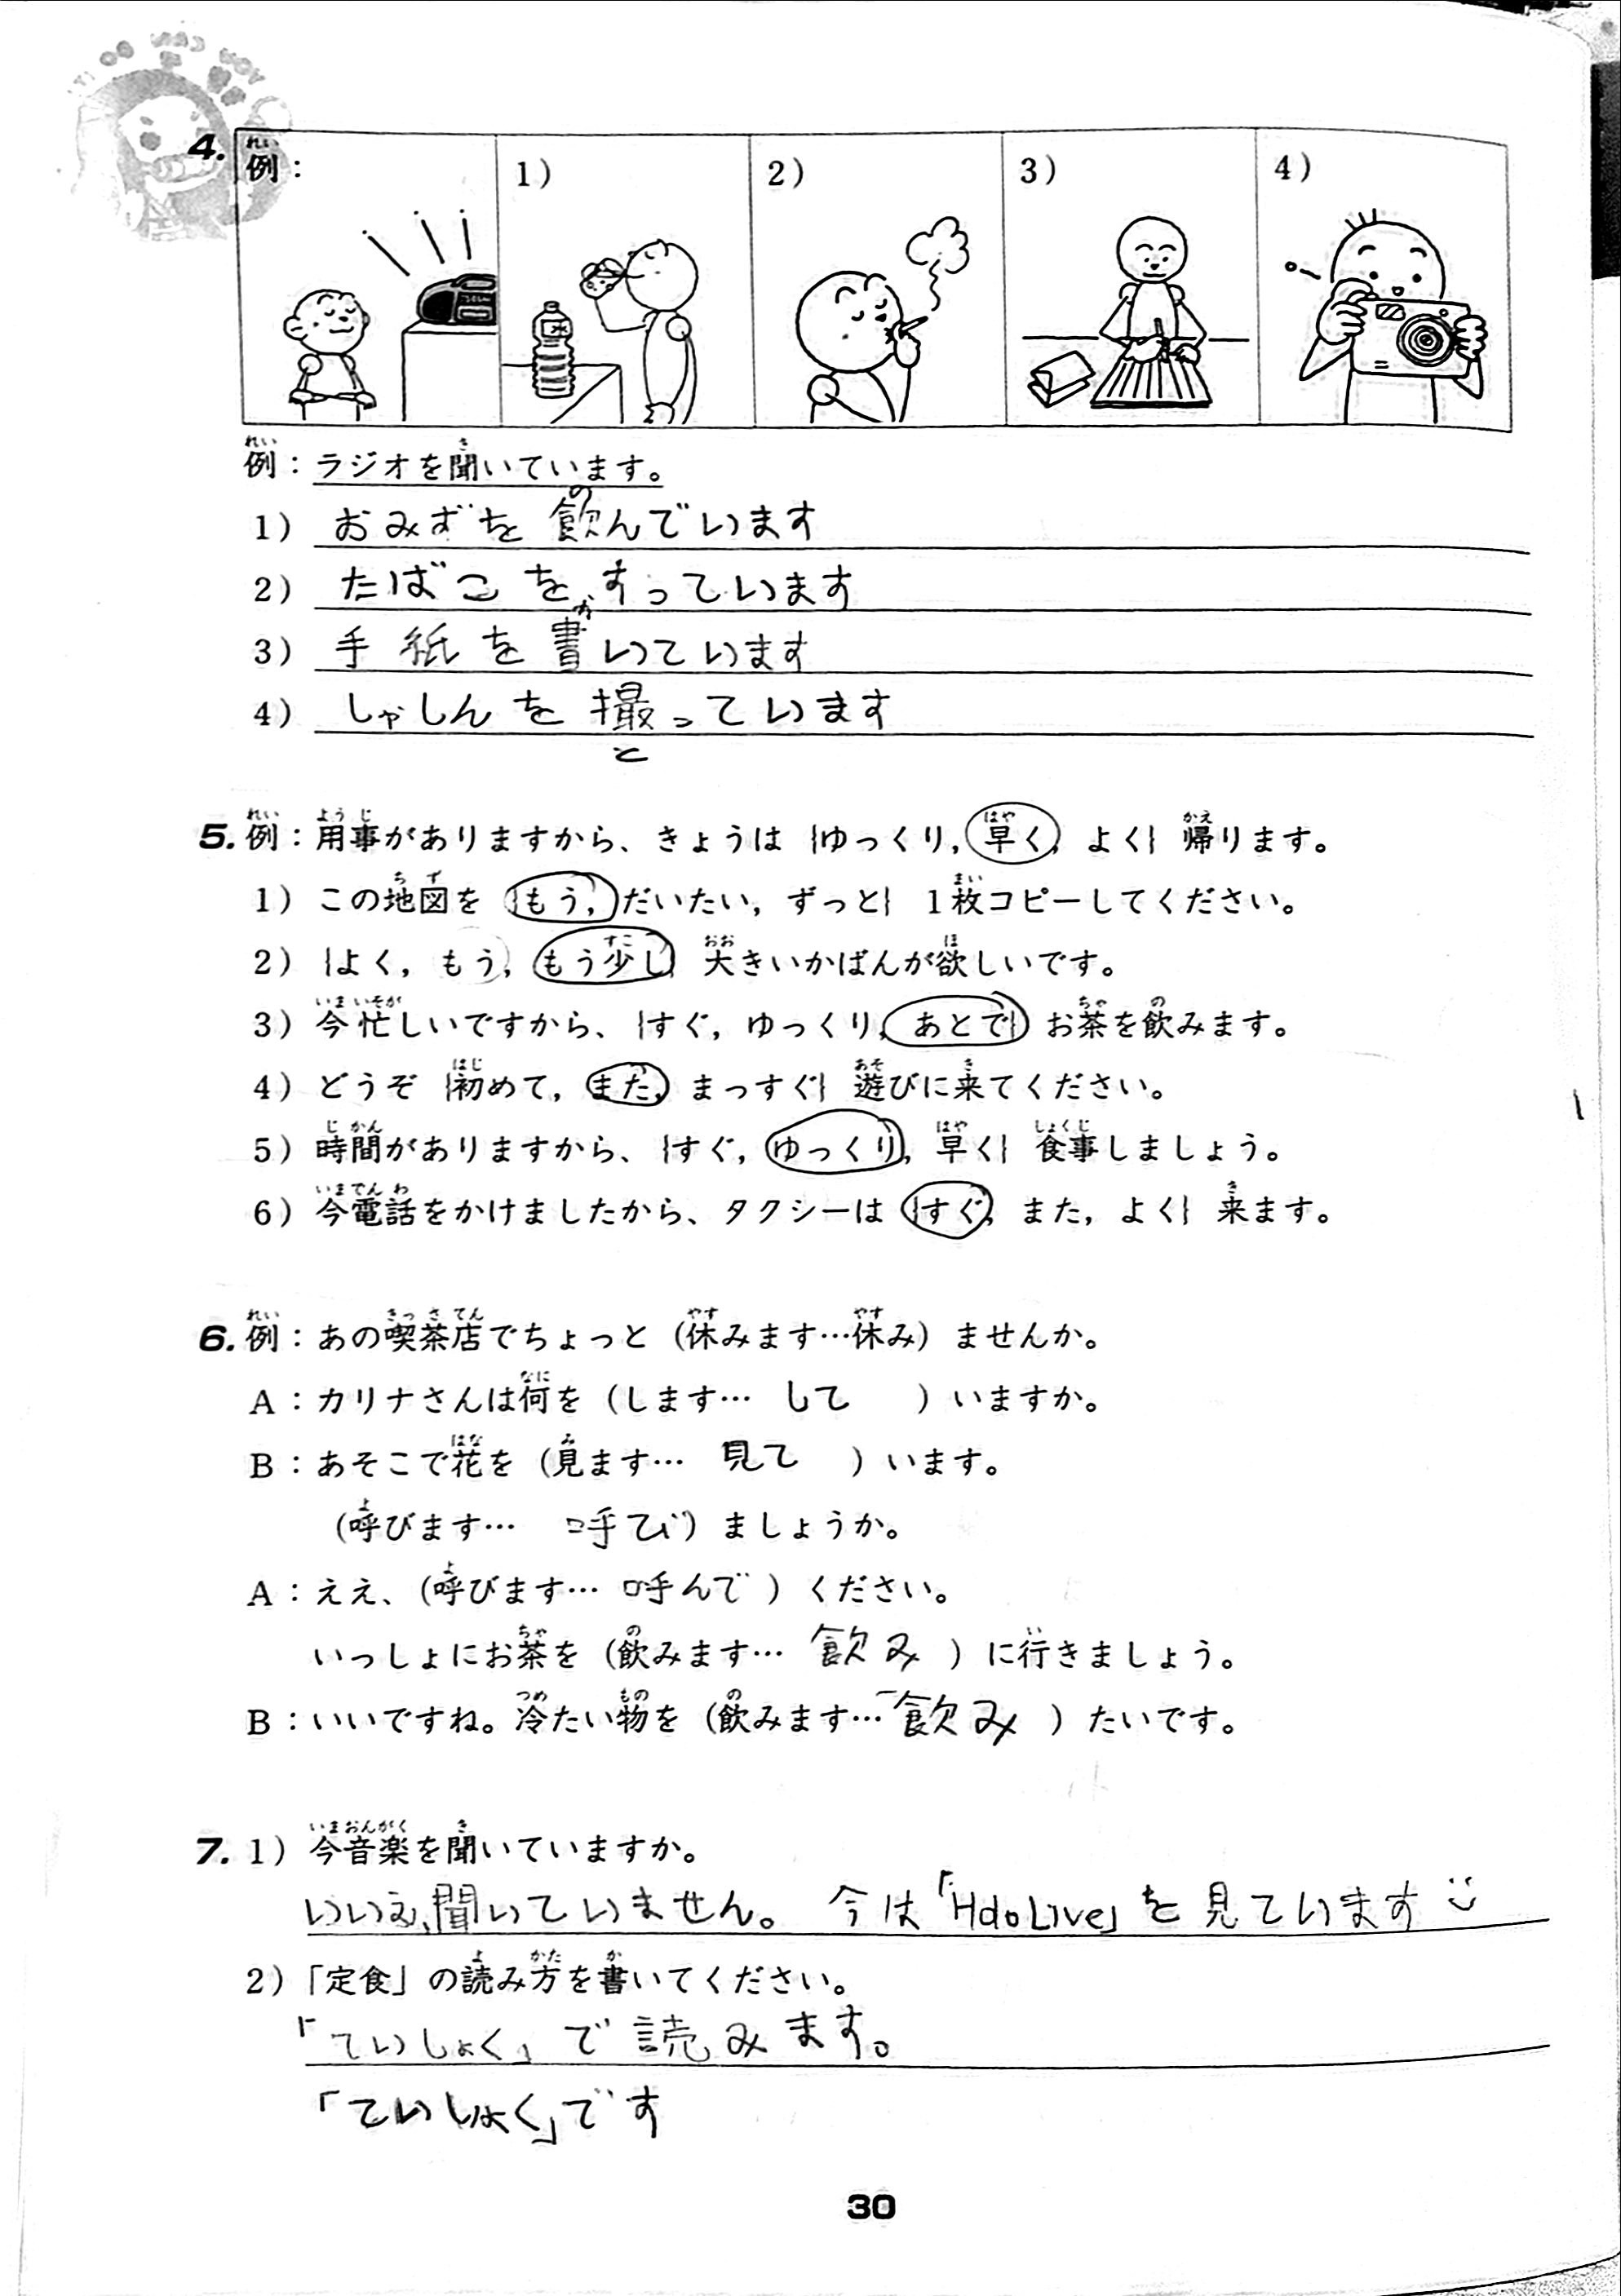 4. 例： 1） 2） 3） 4）
例：ラジオを聞いています。
1） おみずを飲んでいます
2） たばこをすっています
3） 手紙を書いています
4） しゃしんを撮っています
5. 例：用事がありますから、きょうは {ゆっくり, 早く, よく} 帰ります。
1） この地図を {もう, だいたい, ずっと} 1枚コピーしてください。
2） {よく, もう, もう少し} 大きいかばんが欲しいです。
3） 今忙しいですから、{すぐ, ゆっくり, あとで} お茶を飲みます。
4） どうぞ {初めて, また, まっすぐ} 遊びに来てください。
5） 時間がありますから、{すぐ, ゆっくり, 早く} 食事しましょう。
6） 今電話をかけましたから、タクシーは {すぐ, また, よく} 来ます。
6. 例：あの喫茶店でちょっと（休みます…休み）ませんか。
A：カリナさんは何を（します… して ）いますか。
B：あそこで花を（見ます… 見て ）います。
（呼びます… 呼び）ましょうか。
A：ええ、（呼びます… 呼んで ）ください。
いっしょにお茶を（飲みます… 飲み ）に行きましょう。
B：いいですね。冷たい物を（飲みます… 飲み ）たいです。
7. 1） 今音楽を聞いていますか。
いいえ、聞いていません。 今は「HdoLive」を見ています
2）「定食」の読み方を書いてください。
「ていしょく」で読みます。
「ていしょく」です
30